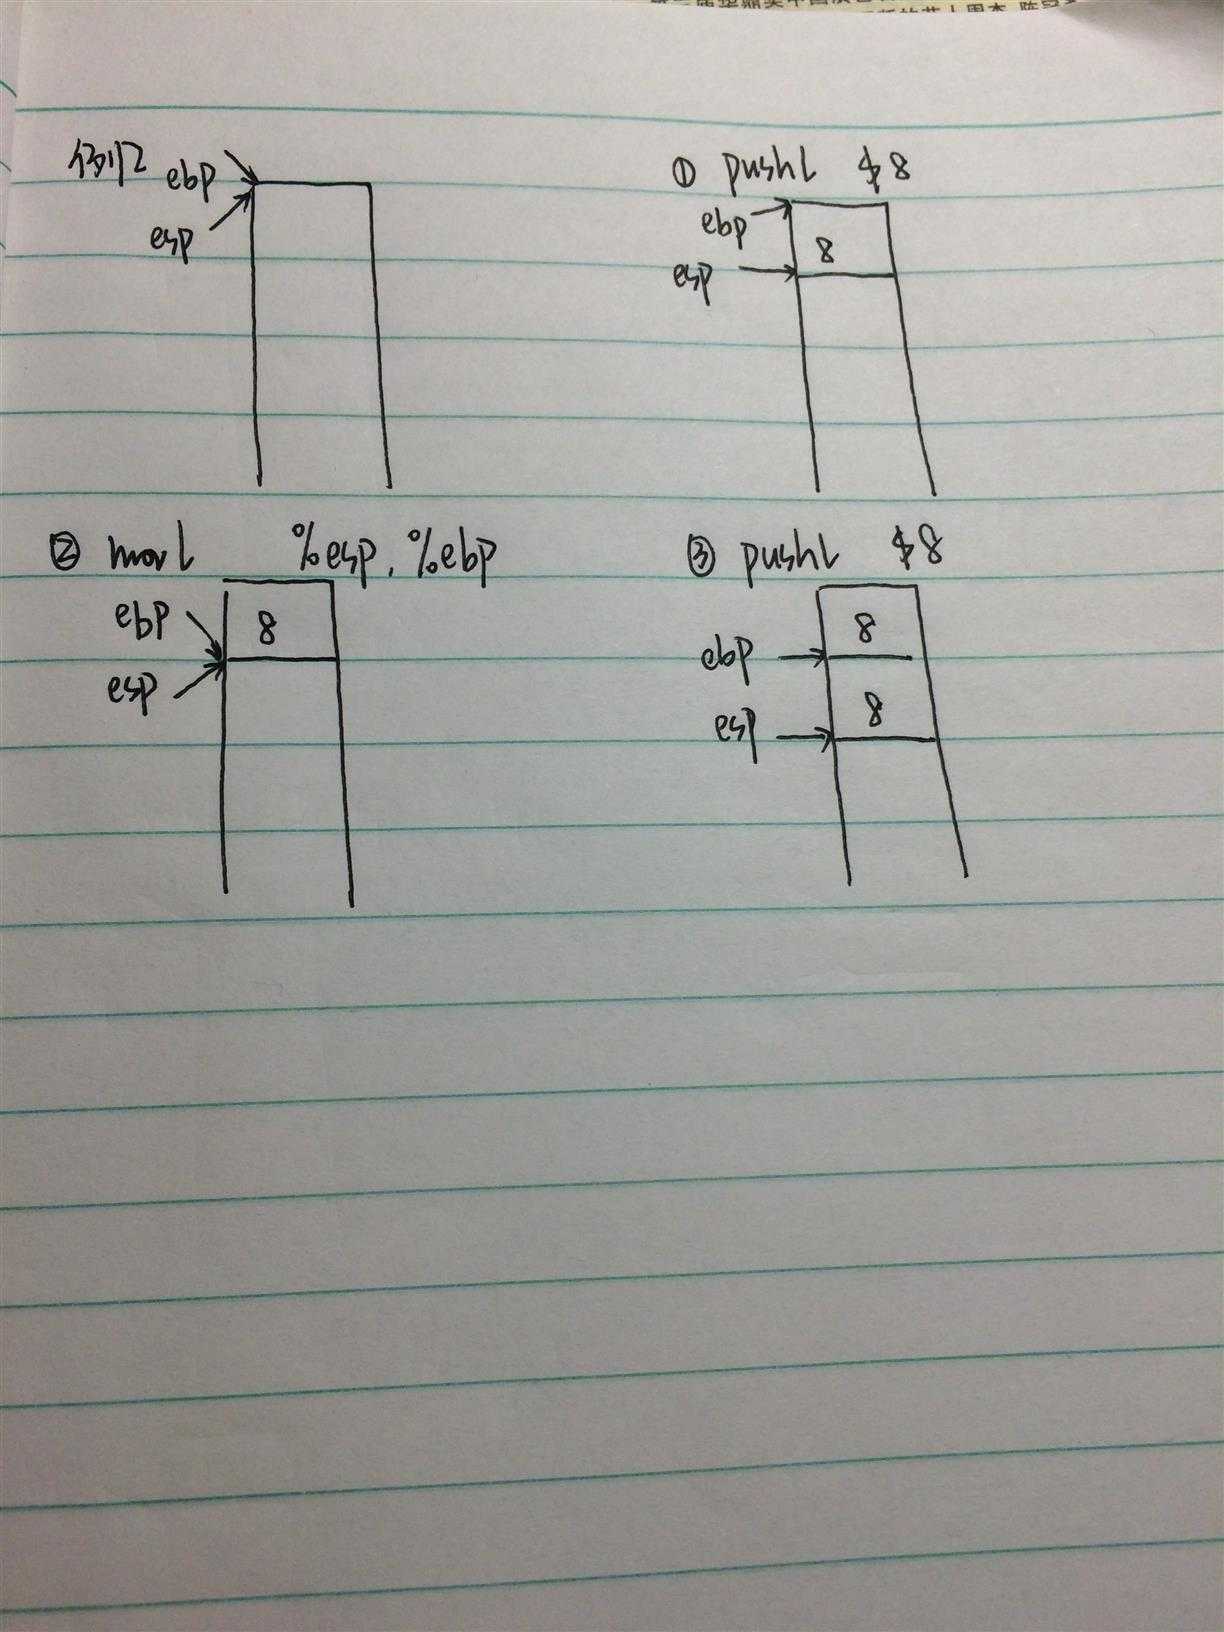 例2
ebp
esp
① pushl $8
ebp
8
esp
② movl %esp, %ebp
ebp
8
esp
③ pushl $8
8
ebp
8
esp